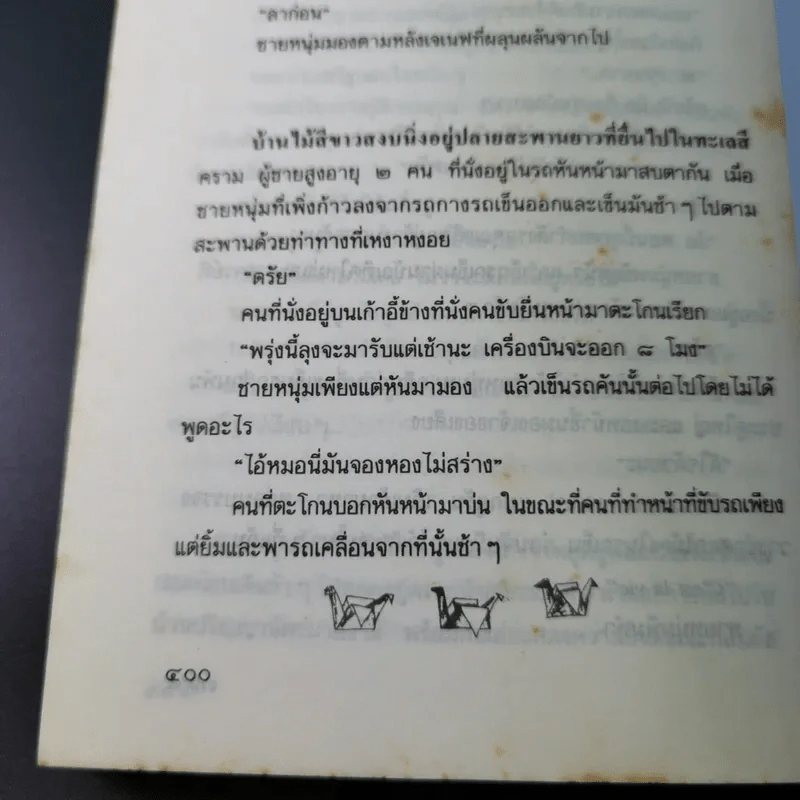 "ลาก่อน"
ชายหนุ่มมองตามหลังเจเนฟที่ผลุนผลันจากไป
บ้านไม้สีขาวสงบนิ่งอยู่ปลายสะพานยาวที่ยื่นไปในทะเลสี
คราม ผู้ชายสูงอายุ ๒ คน ที่นั่งอยู่ในรถหันหน้ามาสบตากัน เมื่อ
ชายหนุ่มที่เพิ่งก้าวลงจากรถกางรถเข็นออกและเข็นมันช้า ๆ ไปตาม
สะพานด้วยท่าทางที่เหงาหงอย
"ตรัย"
คนที่นั่งอยู่บนเก้าอี้ข้างที่นั่งคนขับยื่นหน้ามาตะโกนเรียก
"พรุ่งนี้ลุงจะมารับแต่เช้านะ เครื่องบินจะออก ๘ โมง"
ชายหนุ่มเพียงแต่หันมามอง แล้วเข็นรถคันนั้นต่อไปโดยไม่ได้
พูดอะไร
"ไอ้หมอนี่มันจองหองไม่สร่าง"
คนที่ตะโกนบอกหันหน้ามาบ่น ในขณะที่คนที่ทำหน้าที่ขับรถเพียง
แต่ยิ้มและพารถเคลื่อนจากที่นั้นช้า ๆ
๔๐๐